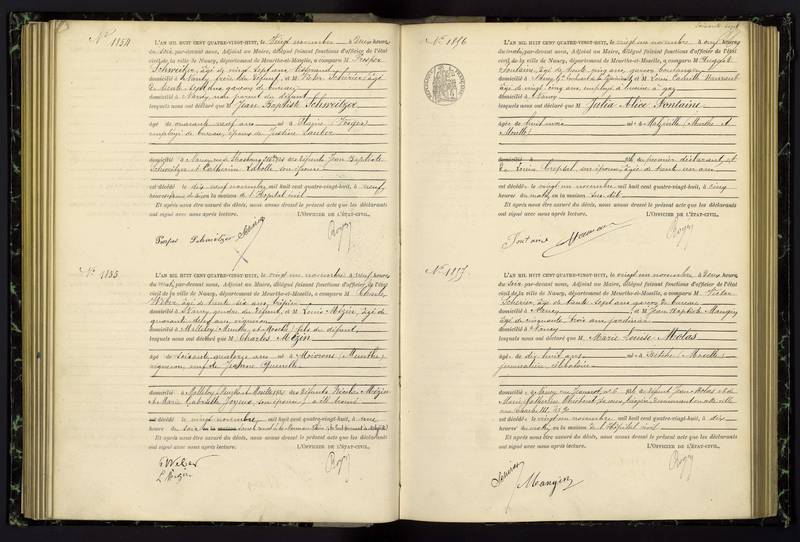 N° 1854
L'AN MIL HUIT CENT QUATRE-VINGT-HUIT, le vingt novembre à deux heures
du soir, par-devant nous, Adjoint au Maire, délégué faisant fonctions d'officier de l'état
civil de la ville de Nancy, département de Meurthe-et-Moselle, a comparu M. Prosper
Schweitzer, âgé de vingt sept ans
domicilié à Nancy, frère du défunt, et M. Victor Scherier, âgé
de trente sept ans, garçon de bureau
domicilié à Nancy non parent du défunt
lesquels nous ont déclaré que M. Jean Baptiste Schweitzer
âgé de quarante neuf ans né à Plaine (Vosges)
employé de bureau, époux de Justine
domicilié à Nancy, rue Strasbourg fils des défunts Jean Baptiste
Schweitzer et Catherine Labolle son épouse
est décédé le dix neuf novembre mil huit cent quatre-vingt-huit, à neuf
heures du en la maison de l'Hôpital civil
Et après nous être assuré du décès, nous avons dressé le présent acte que les déclarants
ont signé avec nous après lecture. L'OFFICIER DE L'ÉTAT-CIVIL,
Prosper Schweitzer
N° 1855
L'AN MIL HUIT CENT QUATRE-VINGT-HUIT, le vingt un novembre à neuf heures
du matin, par-devant nous, Adjoint au Maire, délégué faisant fonctions d'officier de l'état
civil de la ville de Nancy, département de Meurthe-et-Moselle, a comparu M. Charles
Weber âgé de trente six ans
domicilié à Nancy, gendre du défunt, et M. Louis Mézin, âgé de
quarante deux ans, vigneron
domicilié à Malleloy (Meurthe et Moselle) fils du défunt
lesquels nous ont déclaré que M. Charles Mézin
âgé de soixante quatorze ans né à Moivrons (Meurthe)
vigneron, veuf de Jeanne
domicilié à Malleloy, Meurthe et Moselle, fils des défunts Nicolas Mézin
et Marie son épouse, a été trouvé
décédé le vingt novembre mil huit cent quatre-vingt-huit, à
heures du soir
Et après nous être assuré du décès, nous avons dressé le présent acte que les déclarants
ont signé avec nous après lecture. L'OFFICIER DE L'ÉTAT-CIVIL,
Weber
L. Mézin
N° 1856
L'AN MIL HUIT CENT QUATRE-VINGT-HUIT, le vingt un novembre à neuf heures
du matin, par-devant nous, Adjoint au Maire, délégué faisant fonctions d'officier de l'état
civil de la ville de Nancy, département de Meurthe-et-Moselle, a comparu M. August
Fontaine, âgé de trente cinq ans, garçon boulanger
domicilié à Nancy et M. Louis
âgé de vingt cinq ans, employé à l'usine à gaz
domicilié à Nancy
lesquels nous ont déclaré que M. Julia Alice Fontaine
âgée de huit mois née à Malzéville (Meurthe et
Moselle)
domicilié à fille du premier déclarant et
de Louise son épouse, âgée de trente un ans
est décédée le vingt un novembre mil huit cent quatre-vingt-huit, à cinq
heures du matin en la maison sus dite
Et après nous être assuré du décès, nous avons dressé le présent acte que les déclarants
ont signé avec nous après lecture. L'OFFICIER DE L'ÉTAT-CIVIL,
Fontaine
N° 1857
L'AN MIL HUIT CENT QUATRE-VINGT-HUIT, le vingt un novembre à deux heures
du soir, par-devant nous, Adjoint au Maire, délégué faisant fonctions d'officier de l'état
civil de la ville de Nancy, département de Meurthe-et-Moselle, a comparu M. Victor
Scherier, âgé de trente sept ans, garçon de bureau
domicilié à Nancy et M. Jean Baptiste Mangin
âgé de cinquante trois ans, jardinier
domicilié à Nancy
lesquels nous ont déclaré que Marie Louise Molas
âgée de dix huit ans née à Bitche (Moselle)
journalière, célibataire
domiciliée à Nancy, rue fille de défunt Jean Molas et de
Marie Catherine demeurant en cette ville
rue Charles III
est décédée le vingt un novembre mil huit cent quatre-vingt-huit, à dix
heures du matin, en la maison de l'Hôpital civil
Et après nous être assuré du décès, nous avons dressé le présent acte que les déclarants
ont signé avec nous après lecture. L'OFFICIER DE L'ÉTAT-CIVIL,
Mangin